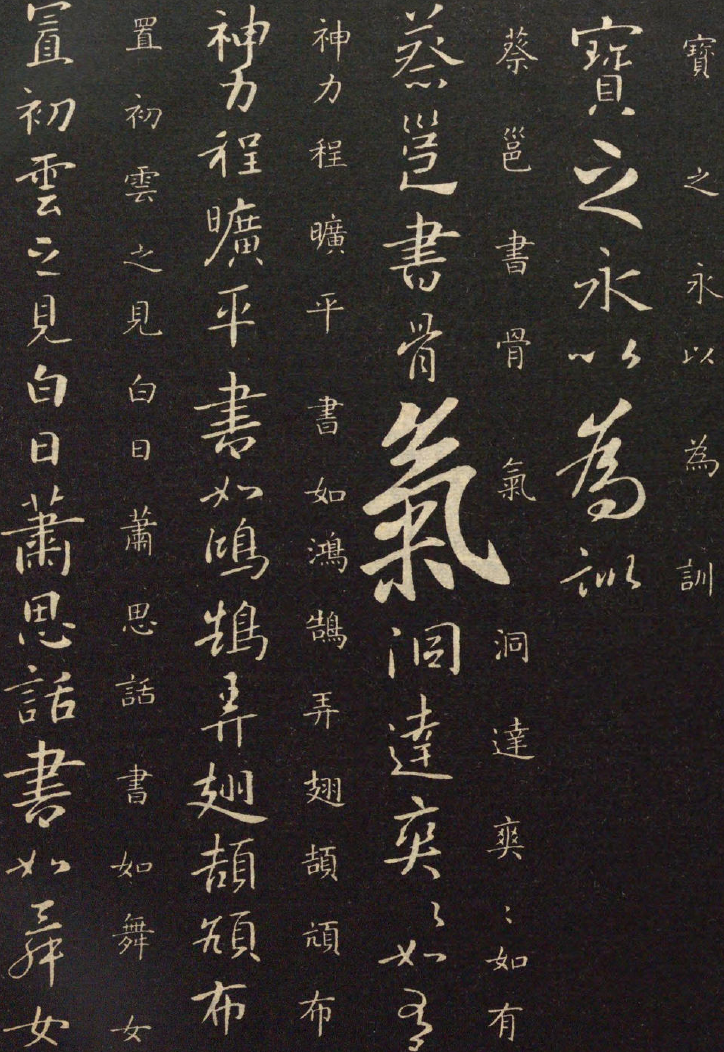 寶之永以為訓
寶之永以為訓
蔡邕書骨氣洞達爽〻如有
蔡邕書骨氣洞達爽〻如有
神力程曠平書如鴻鵠弄翅頡頏布
神力程曠平書如鴻鵠弄翅頡頏布
置初雲之見白日蕭思話書如舞女
置初雲之見白日蕭思話書如舞女